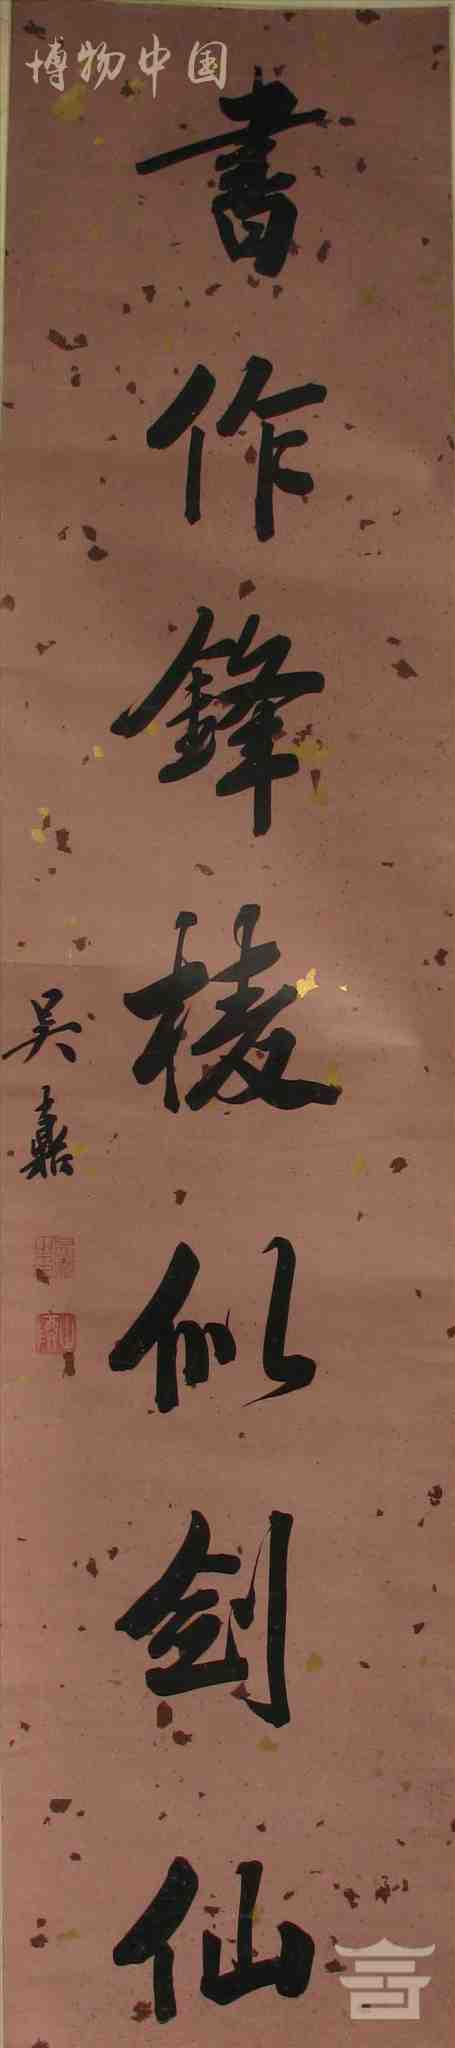 博物中国
書作鋒棱似劍仙
吴鼒